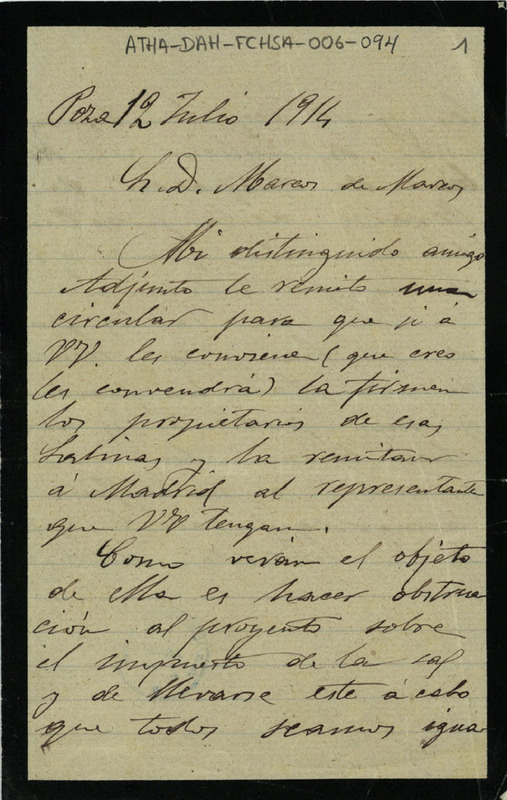 ATHA-DAH-FCHSA-006-094 1
Poza 12 Julio 1914
Sr. D. Marcos de Marcos
Mi distinguido amigo
Adjunto le remito una
circular para que si á
VV. les conviene (que creo
les convendrá) la firmen
los propietarios de esas
Salinas y la remitan
á Madrid al representante
que VV tengan.
Como verán el objeto
de ella es hacer obstruc
ción al proyecto sobre
el impuesto de la sal
y de llevarse este á cabo
que todos seamos igua